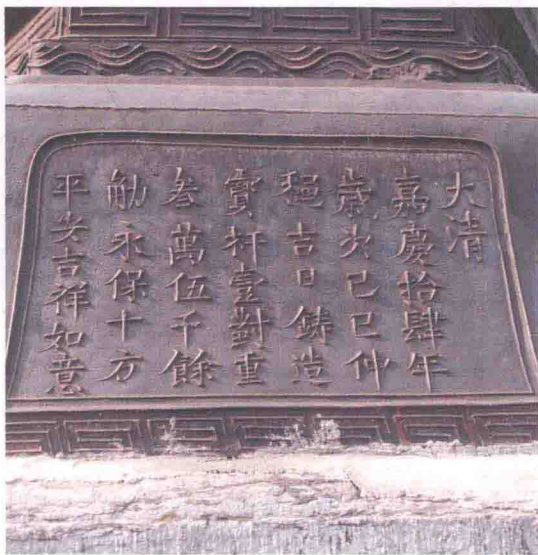 大清
嘉慶拾肆年
歲次己巳仲
穐吉日鑄造
寶杆壹對重
叁萬伍千餘
觔永保十方
平安吉祥如意